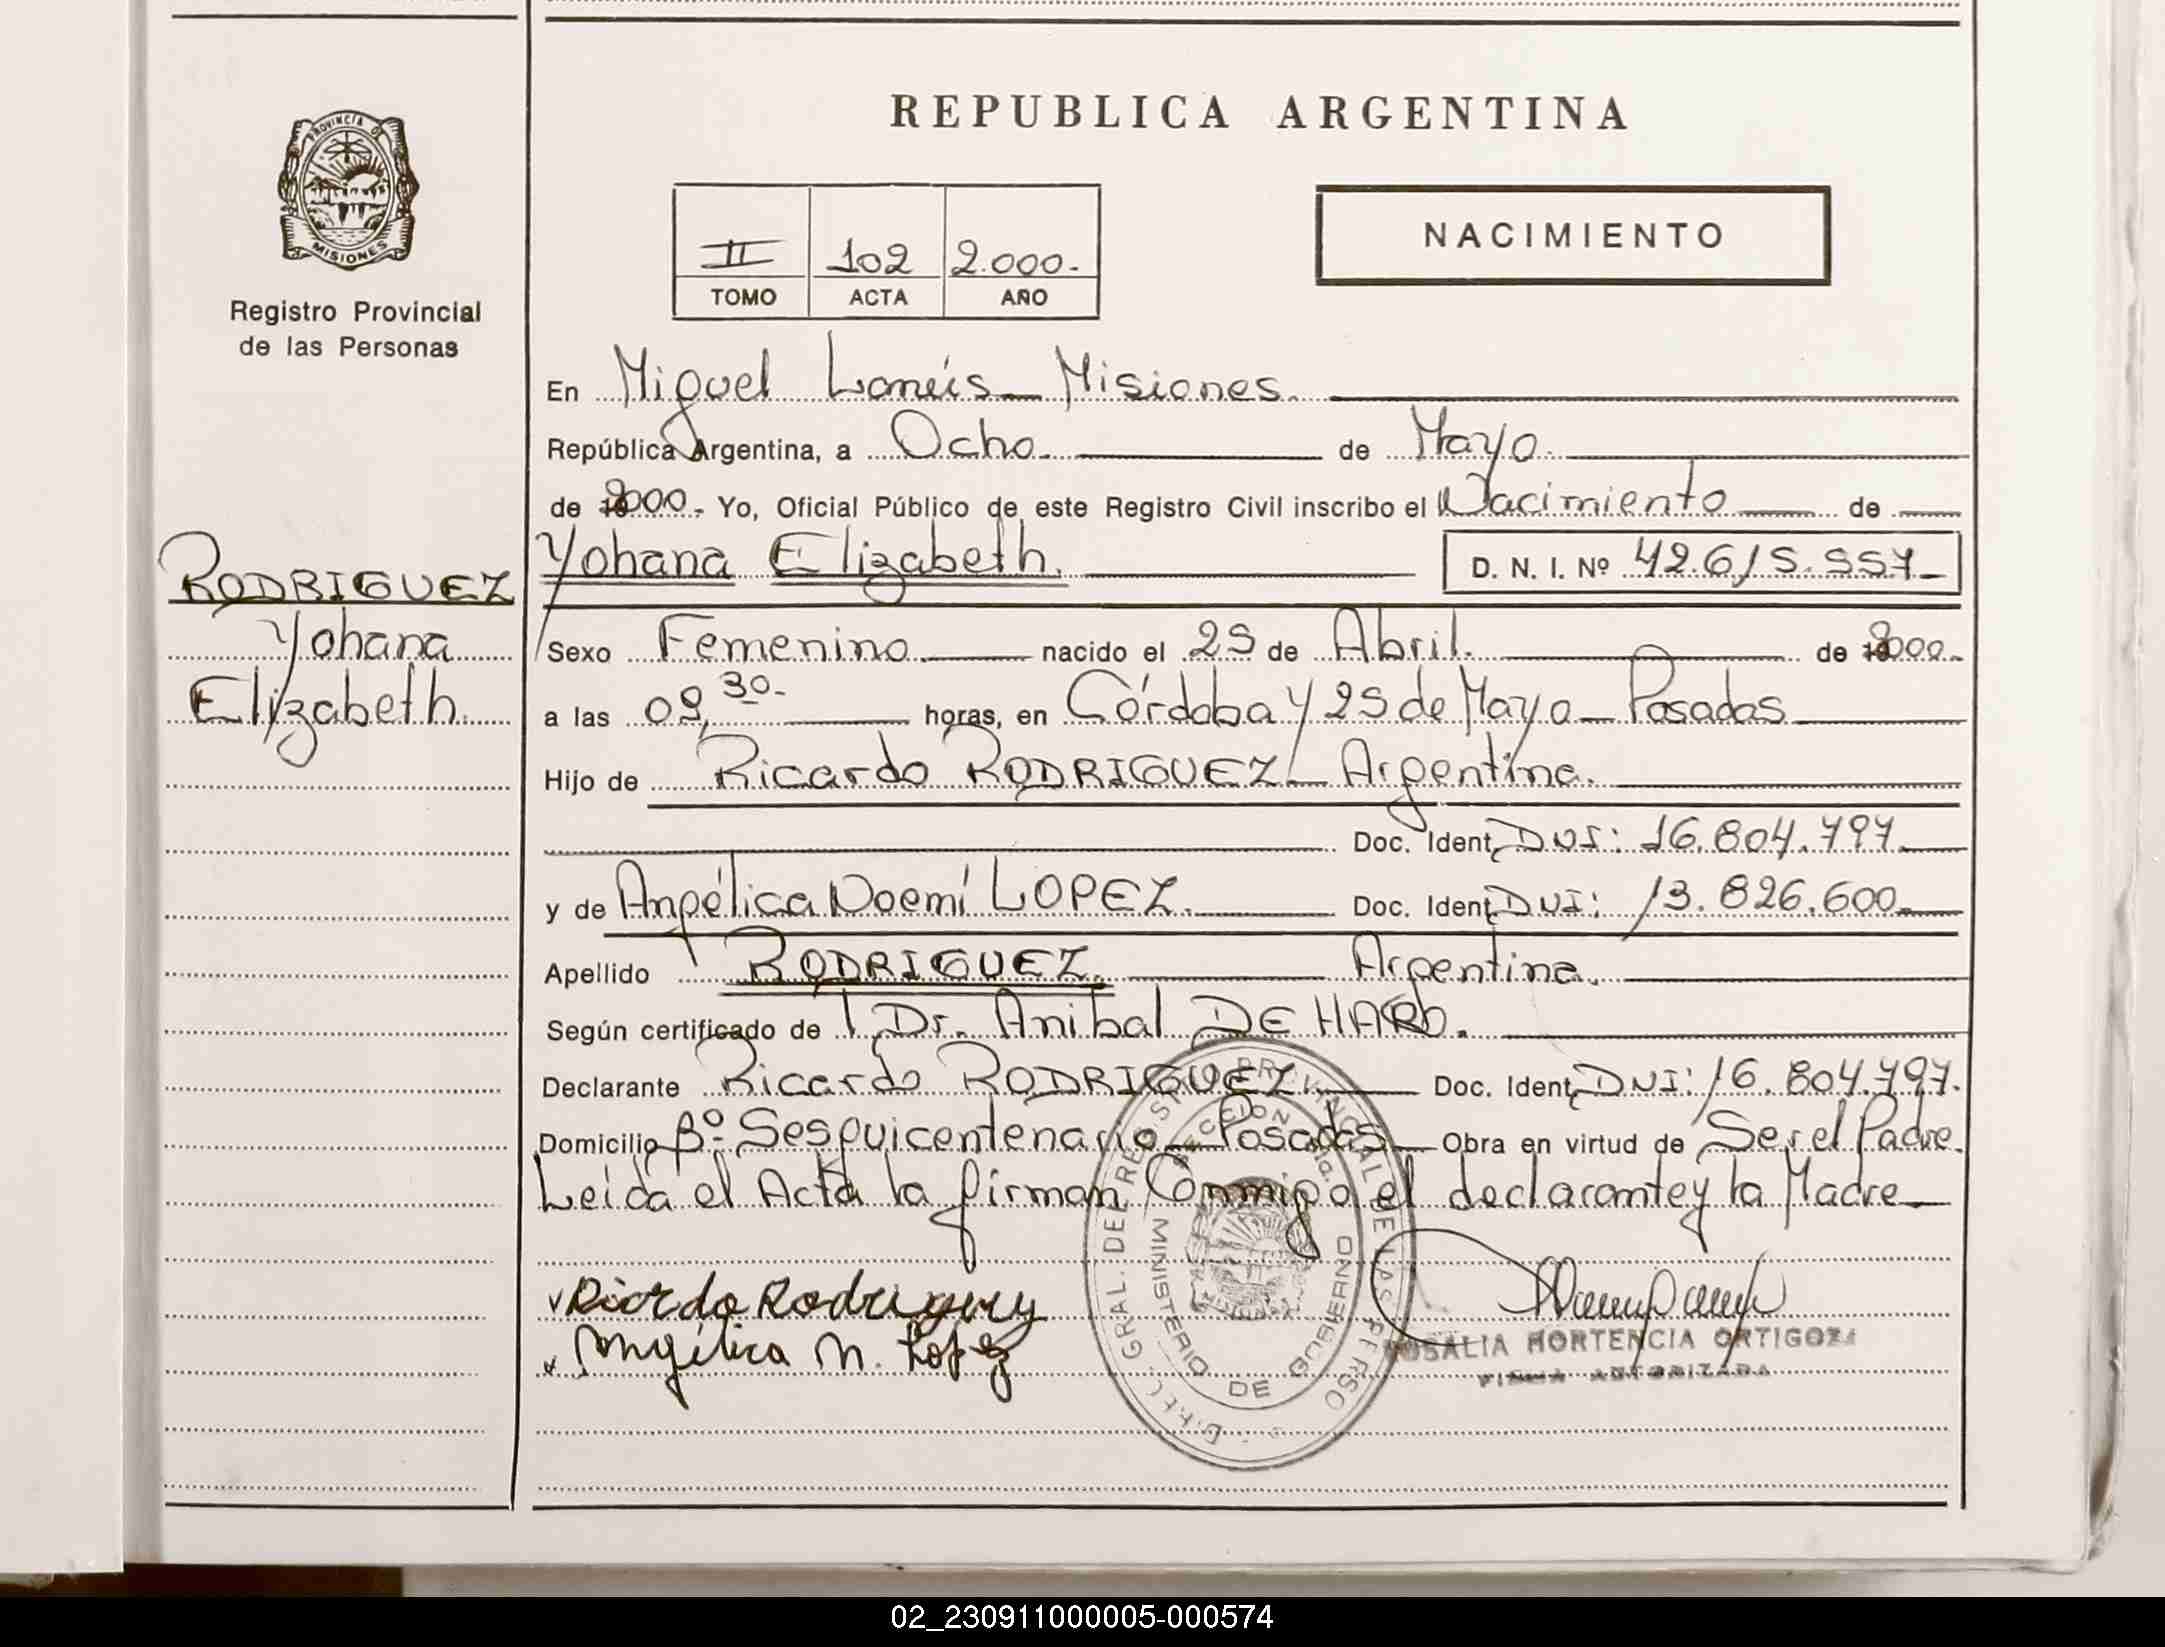 REPUBLICA ARGENTINA
PROVINCIA DE
MISIONES
Registro Provincial
de las Personas
II 102 2.000.-
TOMO ACTA AÑO
NACIMIENTO
En Miguel Lanús - Misiones.
República Argentina, a Ocho. de Mayo.
de 2000.- Yo, Oficial Público de este Registro Civil inscribo el Nacimiento de
Yohana Elizabeth. D. N. I. Nº 42.615.557-
RODRIGUEZ
Yohana
Elizabeth.
Sexo Femenino nacido el 25 de Abril. de 2000.-
a las 09,30.- horas, en Córdoba y 25 de Mayo - Posadas
Hijo de Ricardo RODRIGUEZ - Argentina.
Doc. Ident. DNI: 16.804.797.
y de Angélica Noemí LOPEZ. Doc. Ident. DNI: 13.826.600.
Apellido RODRIGUEZ. Argentina.
Según certificado de Dr. Anibal DE HARO.
Declarante Ricardo RODRIGUEZ. Doc. Ident. DNI: 16.804.797.
Domicilio Bº- Sesquicentenario - Posadas - Obra en virtud de Ser el Padre.
Leída el Acta la firman Conmigo el declarante y la Madre
Ricardo Rodriguez
Angélica N. Lopez
GRAL. DEL REGISTRO PROVINCIAL DE LAS PERSO
MINISTERIO DE GOBIERNO
ROSALIA HORTENCIA ORTIGOZA
FIRMA AUTORIZADA
02_230911000005-000574